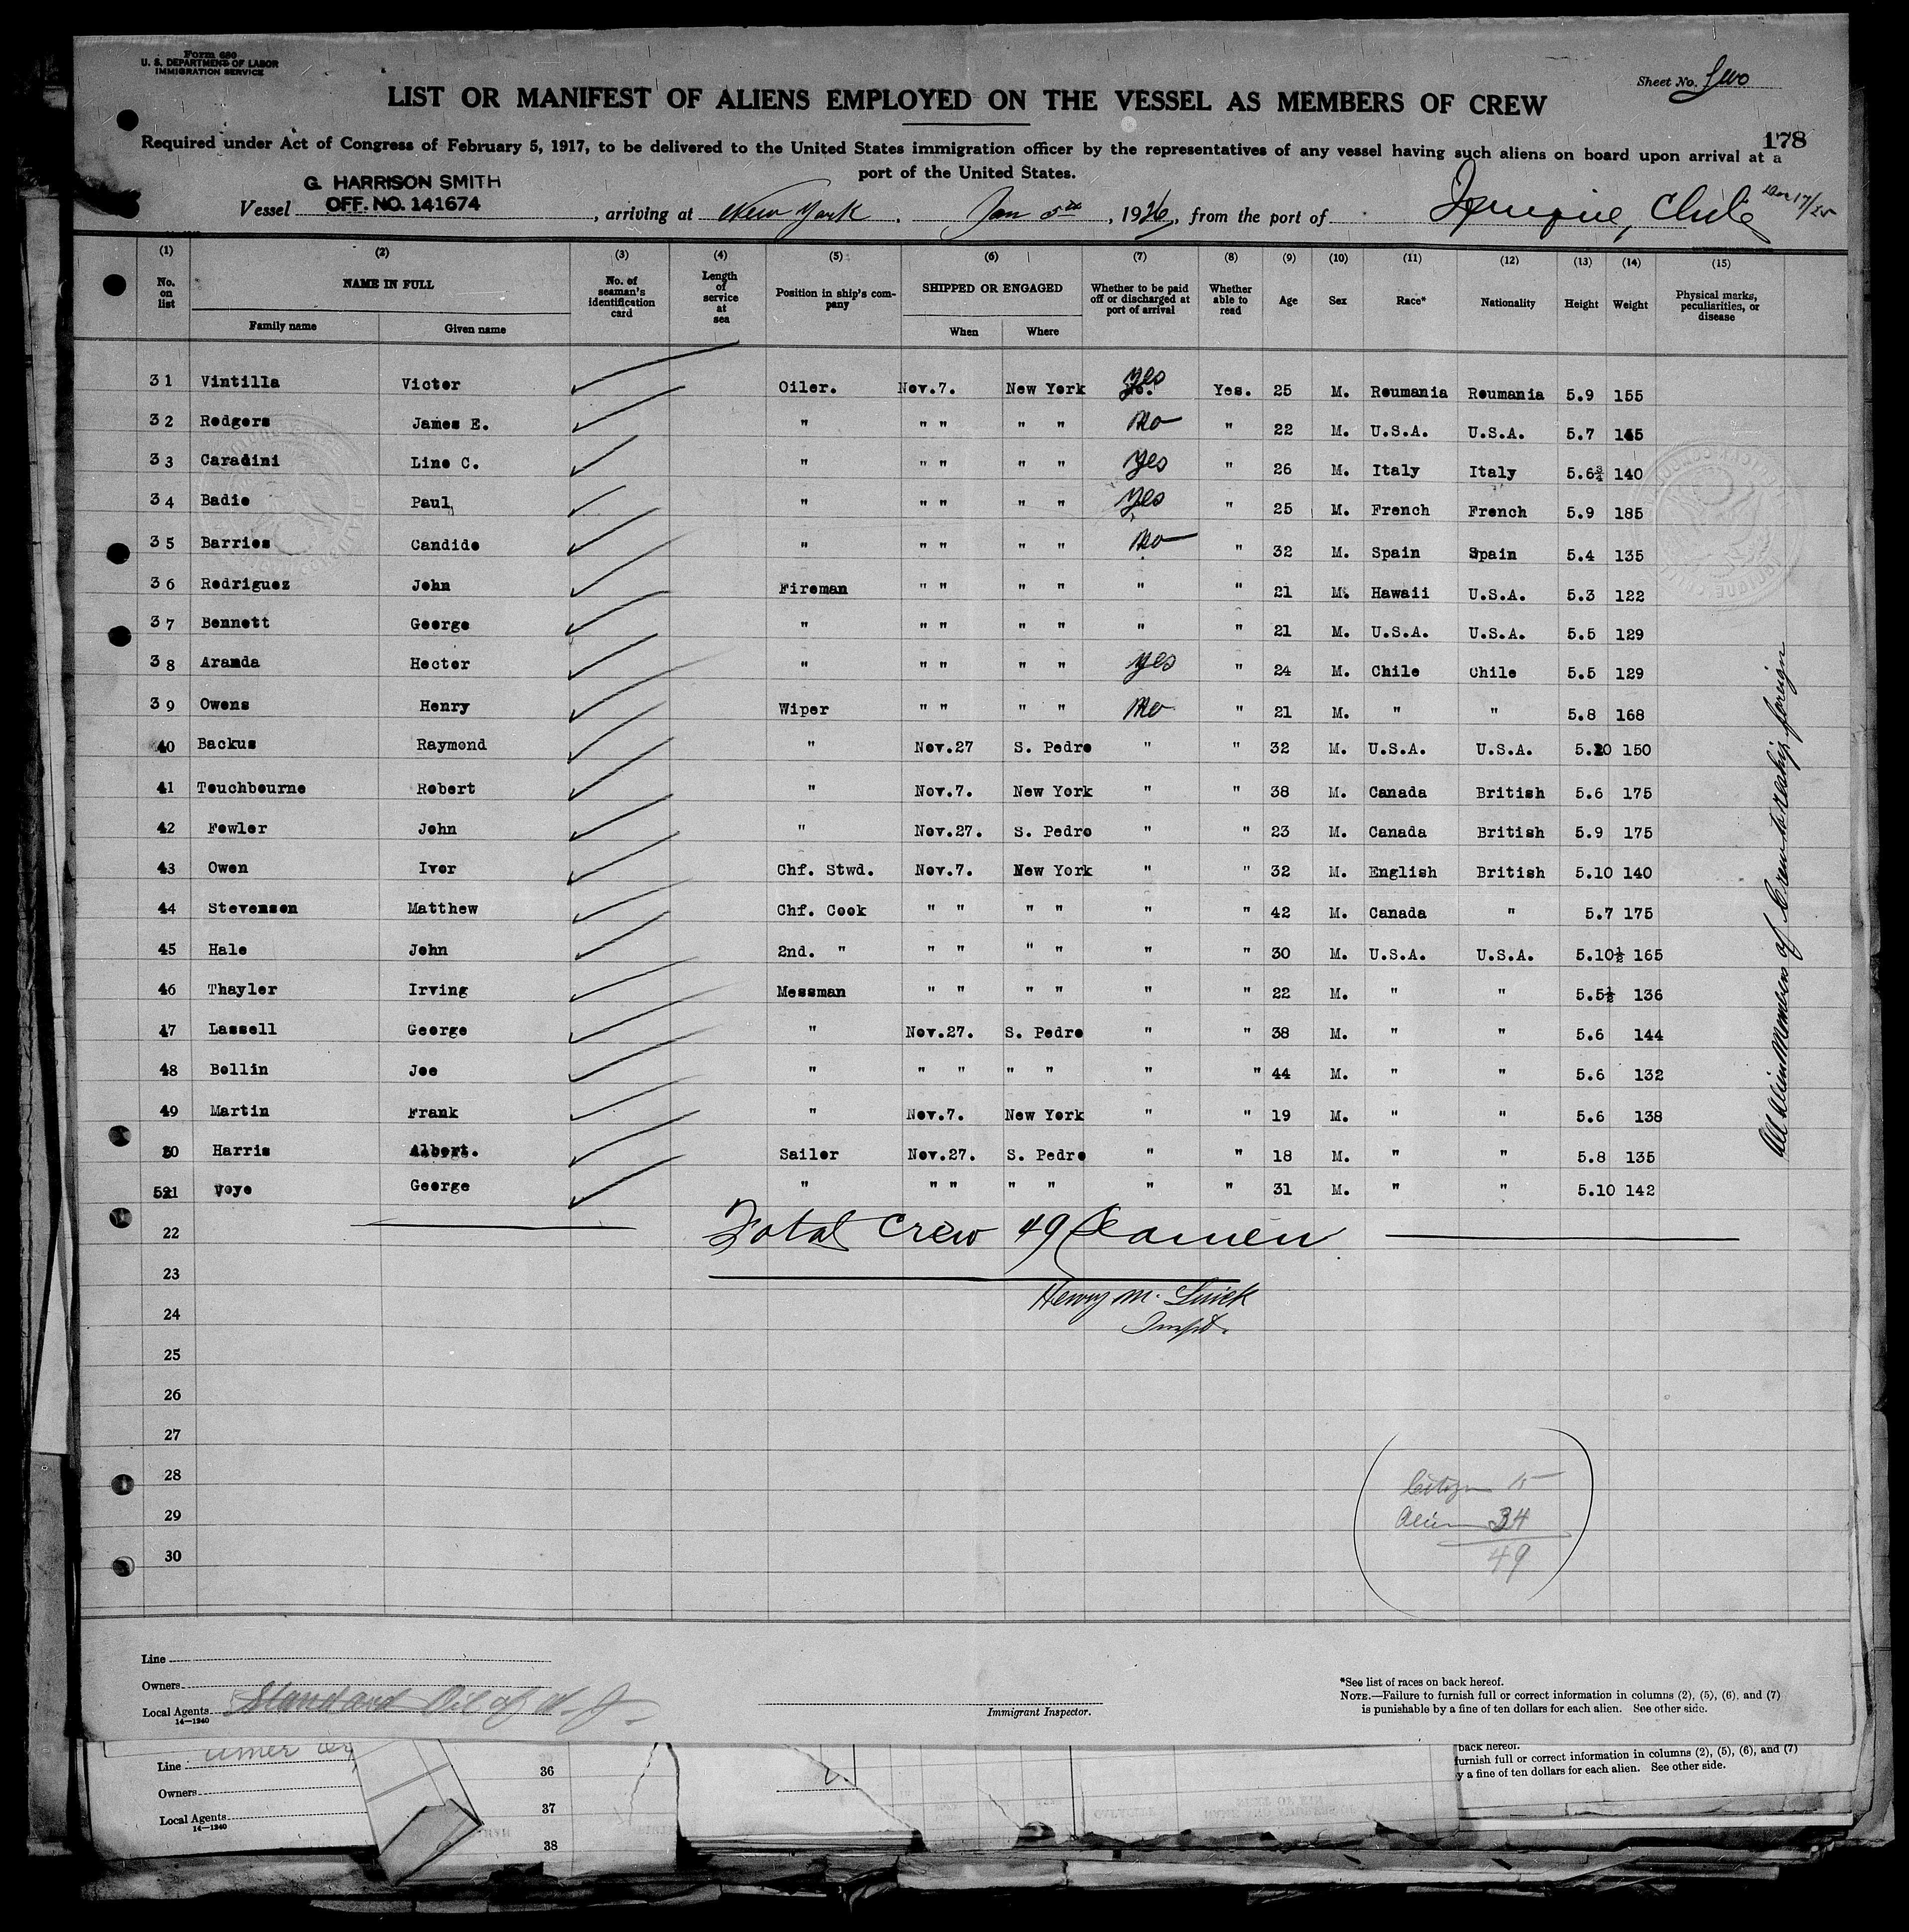 Form 680
U. S. DEPARTMENT OF LABOR
IMMIGRATION SERVICE
Sheet No. Two
LIST OR MANIFEST OF ALIENS EMPLOYED ON THE VESSEL AS MEMBERS OF CREW
178
Required under Act of Congress of February 5, 1917, to be delivered to the United States immigration officer by the representatives of any vessel having such aliens on board upon arrival at a
port of the United States.
G. HARRISON SMITH
Vessel OFF. NO. 141674, arriving at New York, Jan 5th, 1926, from the port of Iquique, Chile Dec 17/25
(1) (2) (3) (4) (5) (6) (7) (8) (9) (10) (11) (12) (13) (14) (15)
No. on list NAME IN FULL Family name Given name No. of seaman's identification card Length of service at sea Position in ship's company SHIPPED OR ENGAGED When Where Whether to be paid off or discharged at port of arrival Whether able to read Age Sex Race* Nationality Height Weight Physical marks, peculiarities, or disease
31 Vintilla Victor Oiler. Nov.7. New York yes Yes. 25 M. Roumania Roumania 5.9 155
32 Rodgers James E. " " " " " No " 22 M. U.S.A. U.S.A. 5.7 145
33 Caradini Lino C. " " " " " yes " 26 M. Italy Italy 5.6¾ 140
34 Badie Paul " " " " " yes " 25 M. French French 5.9 185
35 Barrios Candido " " " " " No " 32 M. Spain Spain 5.4 135
36 Rodriguez John Fireman " " " " " " 21 M. Hawaii U.S.A. 5.3 122
37 Bennett George " " " " " " " 21 M. U.S.A. U.S.A. 5.5 129
38 Aranda Hector " " " " " yes " 24 M. Chile Chile 5.5 129
39 Owens Henry Wiper " " " " No " 21 M. " " 5.8 168
40 Backus Raymond " Nov.27 S. Pedro " " 32 M. U.S.A. U.S.A. 5.10 150
41 Touchbourne Robert " Nov.7. New York " " 38 M. Canada British 5.6 175
42 Fowler John " Nov.27. S. Pedro " " 23 M. Canada British 5.9 175
43 Owen Ivor Chf. Stwd. Nov.7. New York " " 32 M. English British 5.10 140
44 Stevenson Matthew Chf. Cook " " " " " " 42 M. Canada " 5.7 175
45 Hale John 2nd. " " " " " " " 30 M. U.S.A. U.S.A. 5.10½ 165
46 Thayler Irving Messman " " " " " " 22 M. " " 5.5½ 136
47 Lassell George " Nov.27. S. Pedro " " 38 M. " " 5.6 144
48 Bollin Joe " " " " " " " 44 M. " " 5.6 132
49 Martin Frank " Nov.7. New York " " 19 M. " " 5.6 138
50 Harris Albert. Sailor Nov.27. S. Pedro " " 18 M. " " 5.8 135
51 Voye George " " " " " " " 31 M. " " 5.10 142
All Alien Members of Crew to reship foreign
22 Total Crew 49 Seamen
23
Henry M.
24
Inspt.
25
26
27
28 Citizen 15
29 Alien 34
30 49
Line
Owners
Local Agents Standard Oil of N. J.
14—1240
Immigrant Inspector.
*See list of races on back hereof.
NOTE.—Failure to furnish full or correct information in columns (2), (5), (6), and (7)
is punishable by a fine of ten dollars for each alien. See other side.
Line
Owners
Local Agents
14—1240
36
37
38
back hereof.
furnish full or correct information in columns (2), (5), (6), and (7)
y a fine of ten dollars for each alien. See other side.